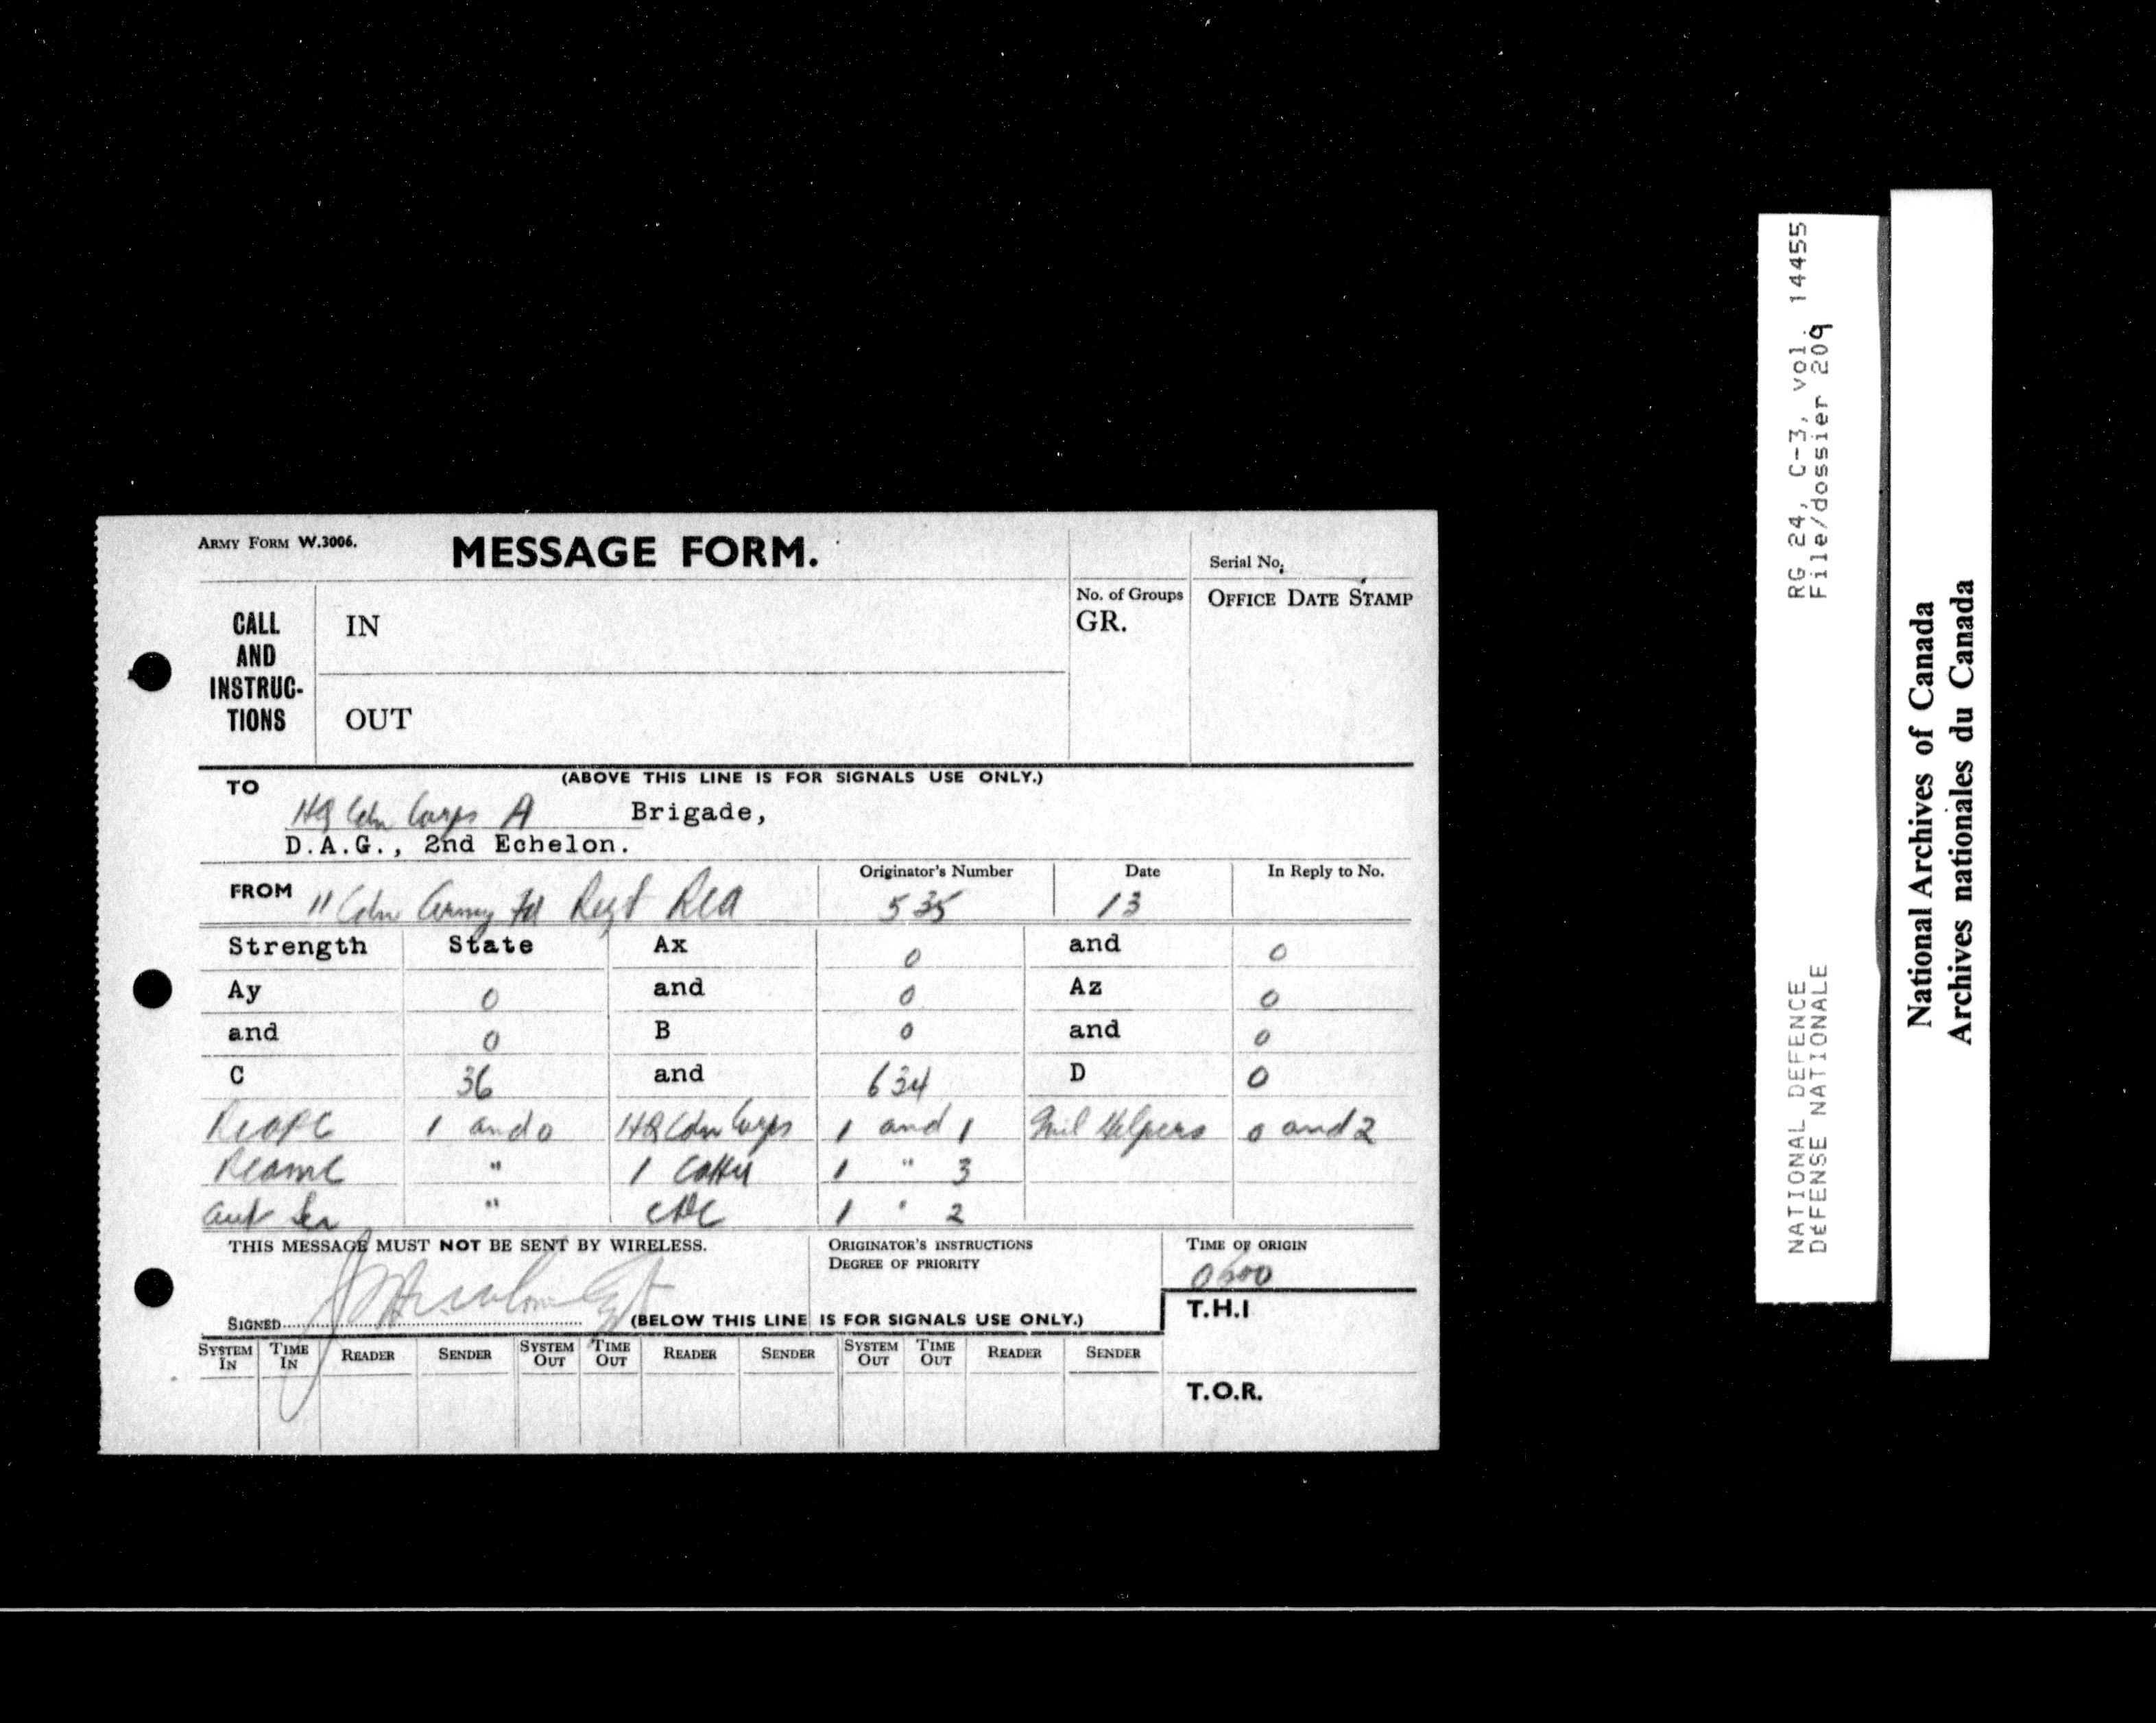 ARMY FORM W.3006. MESSAGE FORM.
Serial No.
CALL AND INSTRUC-TIONS
IN
OUT
No. of Groups
GR.
OFFICE DATE STAMP
(ABOVE THIS LINE IS FOR SIGNALS USE ONLY.)
TO
HQ Cdn Corps A Brigade,
D.A.G., 2nd Echelon.
FROM 11 Cdn Army Fd Regt RCA
Originator's Number 535
Date 13
In Reply to No.
Strength State Ax 0 and 0
Ay 0 and 0 Az 0
and 0 B 0 and 0
C 36 and 634 D 0
RCAPC 1 and 0 HQ Cdn Corps 1 and 1 Helpers 0 and 2
RCAMC " 1 1 " 3
" CDC 1 " 2
THIS MESSAGE MUST NOT BE SENT BY WIRELESS.
ORIGINATOR'S INSTRUCTIONS
DEGREE OF PRIORITY
TIME OF ORIGIN
0600
SIGNED
(BELOW THIS LINE IS FOR SIGNALS USE ONLY.)
T.H.I
SYSTEM IN TIME IN READER SENDER SYSTEM OUT TIME OUT READER SENDER SYSTEM OUT TIME OUT READER SENDER
T.O.R.
NATIONAL DEFENCE RG 24, C-3, vol. 14455
DéFENSE NATIONALE File/dossier 209
National Archives of Canada
Archives nationales du Canada